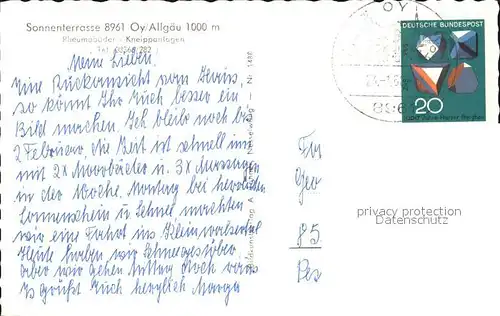 Sonnenterrasse 8961 Oy/Allgäu 1000 m
Rheumabäder - Kneippanlagen
Tel. 08366/282
Meine Lieben.
Eine Rückansicht vom Haus,
so könnt Ihr Euch besser ein
Bild machen. Ich bleibe noch bis
2 Februar. Die Zeit ist schnell um
mit 2x Moorbäder u. 3x Massagen
in der Woche. Montag bei herrlichem
Sonnenschein u. Schnee machten
wir eine Fahrt ins Kleinwalsertal
Heute haben wir Schneegestöber
aber wir gehen Mittag doch raus
Es grüßt Euch herzlich Marga
Nr. 1486
OY
DEUTSCHE BUNDESPOST
20
1000 Jahre Harzer Bergbau
896
Fam
Geo
85
privacy protection
Datenschutz